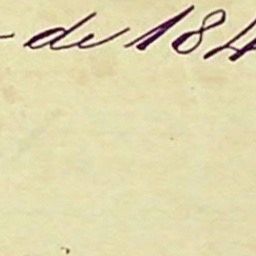 de 184